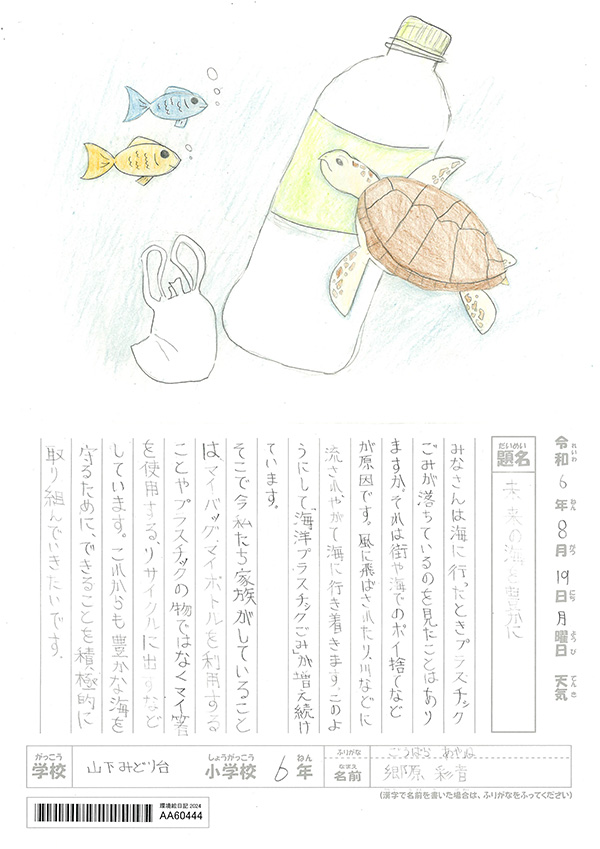 令和6年8月19日月曜日 天気
れいわ ねん がつ にち ようび てんき
だいめい
題名
未来の海を豊かに
みなさんは海に行ったときプラスチック
ごみが落ちているのを見たことはあり
ますか。それは街や海でのポイ捨てなど
が原因です。風に飛ばされたり、川などに
流されやがて海に行き着きます。このよ
うにして「海洋プラスチックごみ」が増え続け
ています。
そこで今私たち家族がしていること
は、マイバッグマイボトルを利用する
ことやプラスチックの物ではなくマイ箸
を使用する、リサイクルに出すなど
しています。これからも豊かな海を
守るために、できることを積極的に
取り組んでいきたいです。
がっこう しょうがっこう ねん
学校 山下みどり台 小学校 6年
ふりがな ごうはら あやね
なまえ
名前 郷原 彩音
(漢字で名前を書いた場合は、ふりがなをふってください)
環境絵日記 2024
AA60444